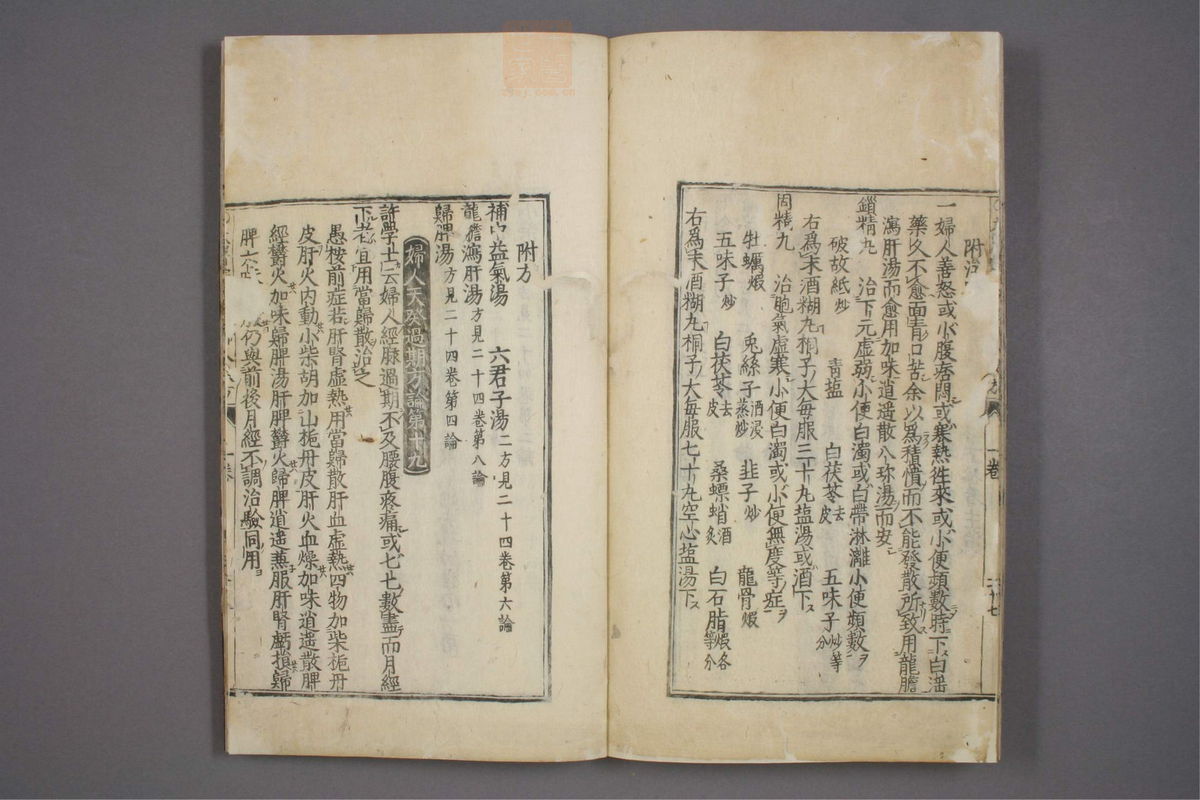 附治
一婦人善怒或小腹痞悶或寒熱徃來或小便頻數時下白淫
藥久不愈面青口苦余以爲積憤而不能發散所致用龍膽
瀉肝湯而愈用加味逍遥散八珎湯而安
鎖精丸　治下元虛弱小便白濁或白帶淋漓小便頻數
破故紙炒　青盐　白茯苓去皮　五味子炒等分
右爲末酒糊丸桐子大每服三十丸盐湯或酒下
固精丸　治胞氣虛寒小便白濁或小便無度等症
牡蠣煆　兎絲子酒浸蒸炒　韭子炒　龍骨煆
五味子炒　白茯苓去皮　桑螵蛸酒炙　白石脂煆各等分
右爲末酒糊丸桐子大每服七十丸空心盐湯下
附方
補中益氣湯　六君子湯二方見二十四卷第六論
龍膽瀉肝湯方見二十四卷第八論
歸脾湯方見二十四卷第四論
婦人天癸過期方論第十九
許學士云婦人經脉過期不及腰腹疼痛或七七數盡而月經
下者宜用當歸散治之
愚按前症若肝腎虛熱用當歸散肝血虛熱四物加柴栀丹
皮肝火内動小柴胡加山栀丹皮肝火血燥加味逍遥散脾
經鬱火加味歸脾湯肝脾鬱火歸脾逍遥兼服肝腎虧損歸
脾六 仍與前後月經不調治驗同用
一卷
一卷
二十七